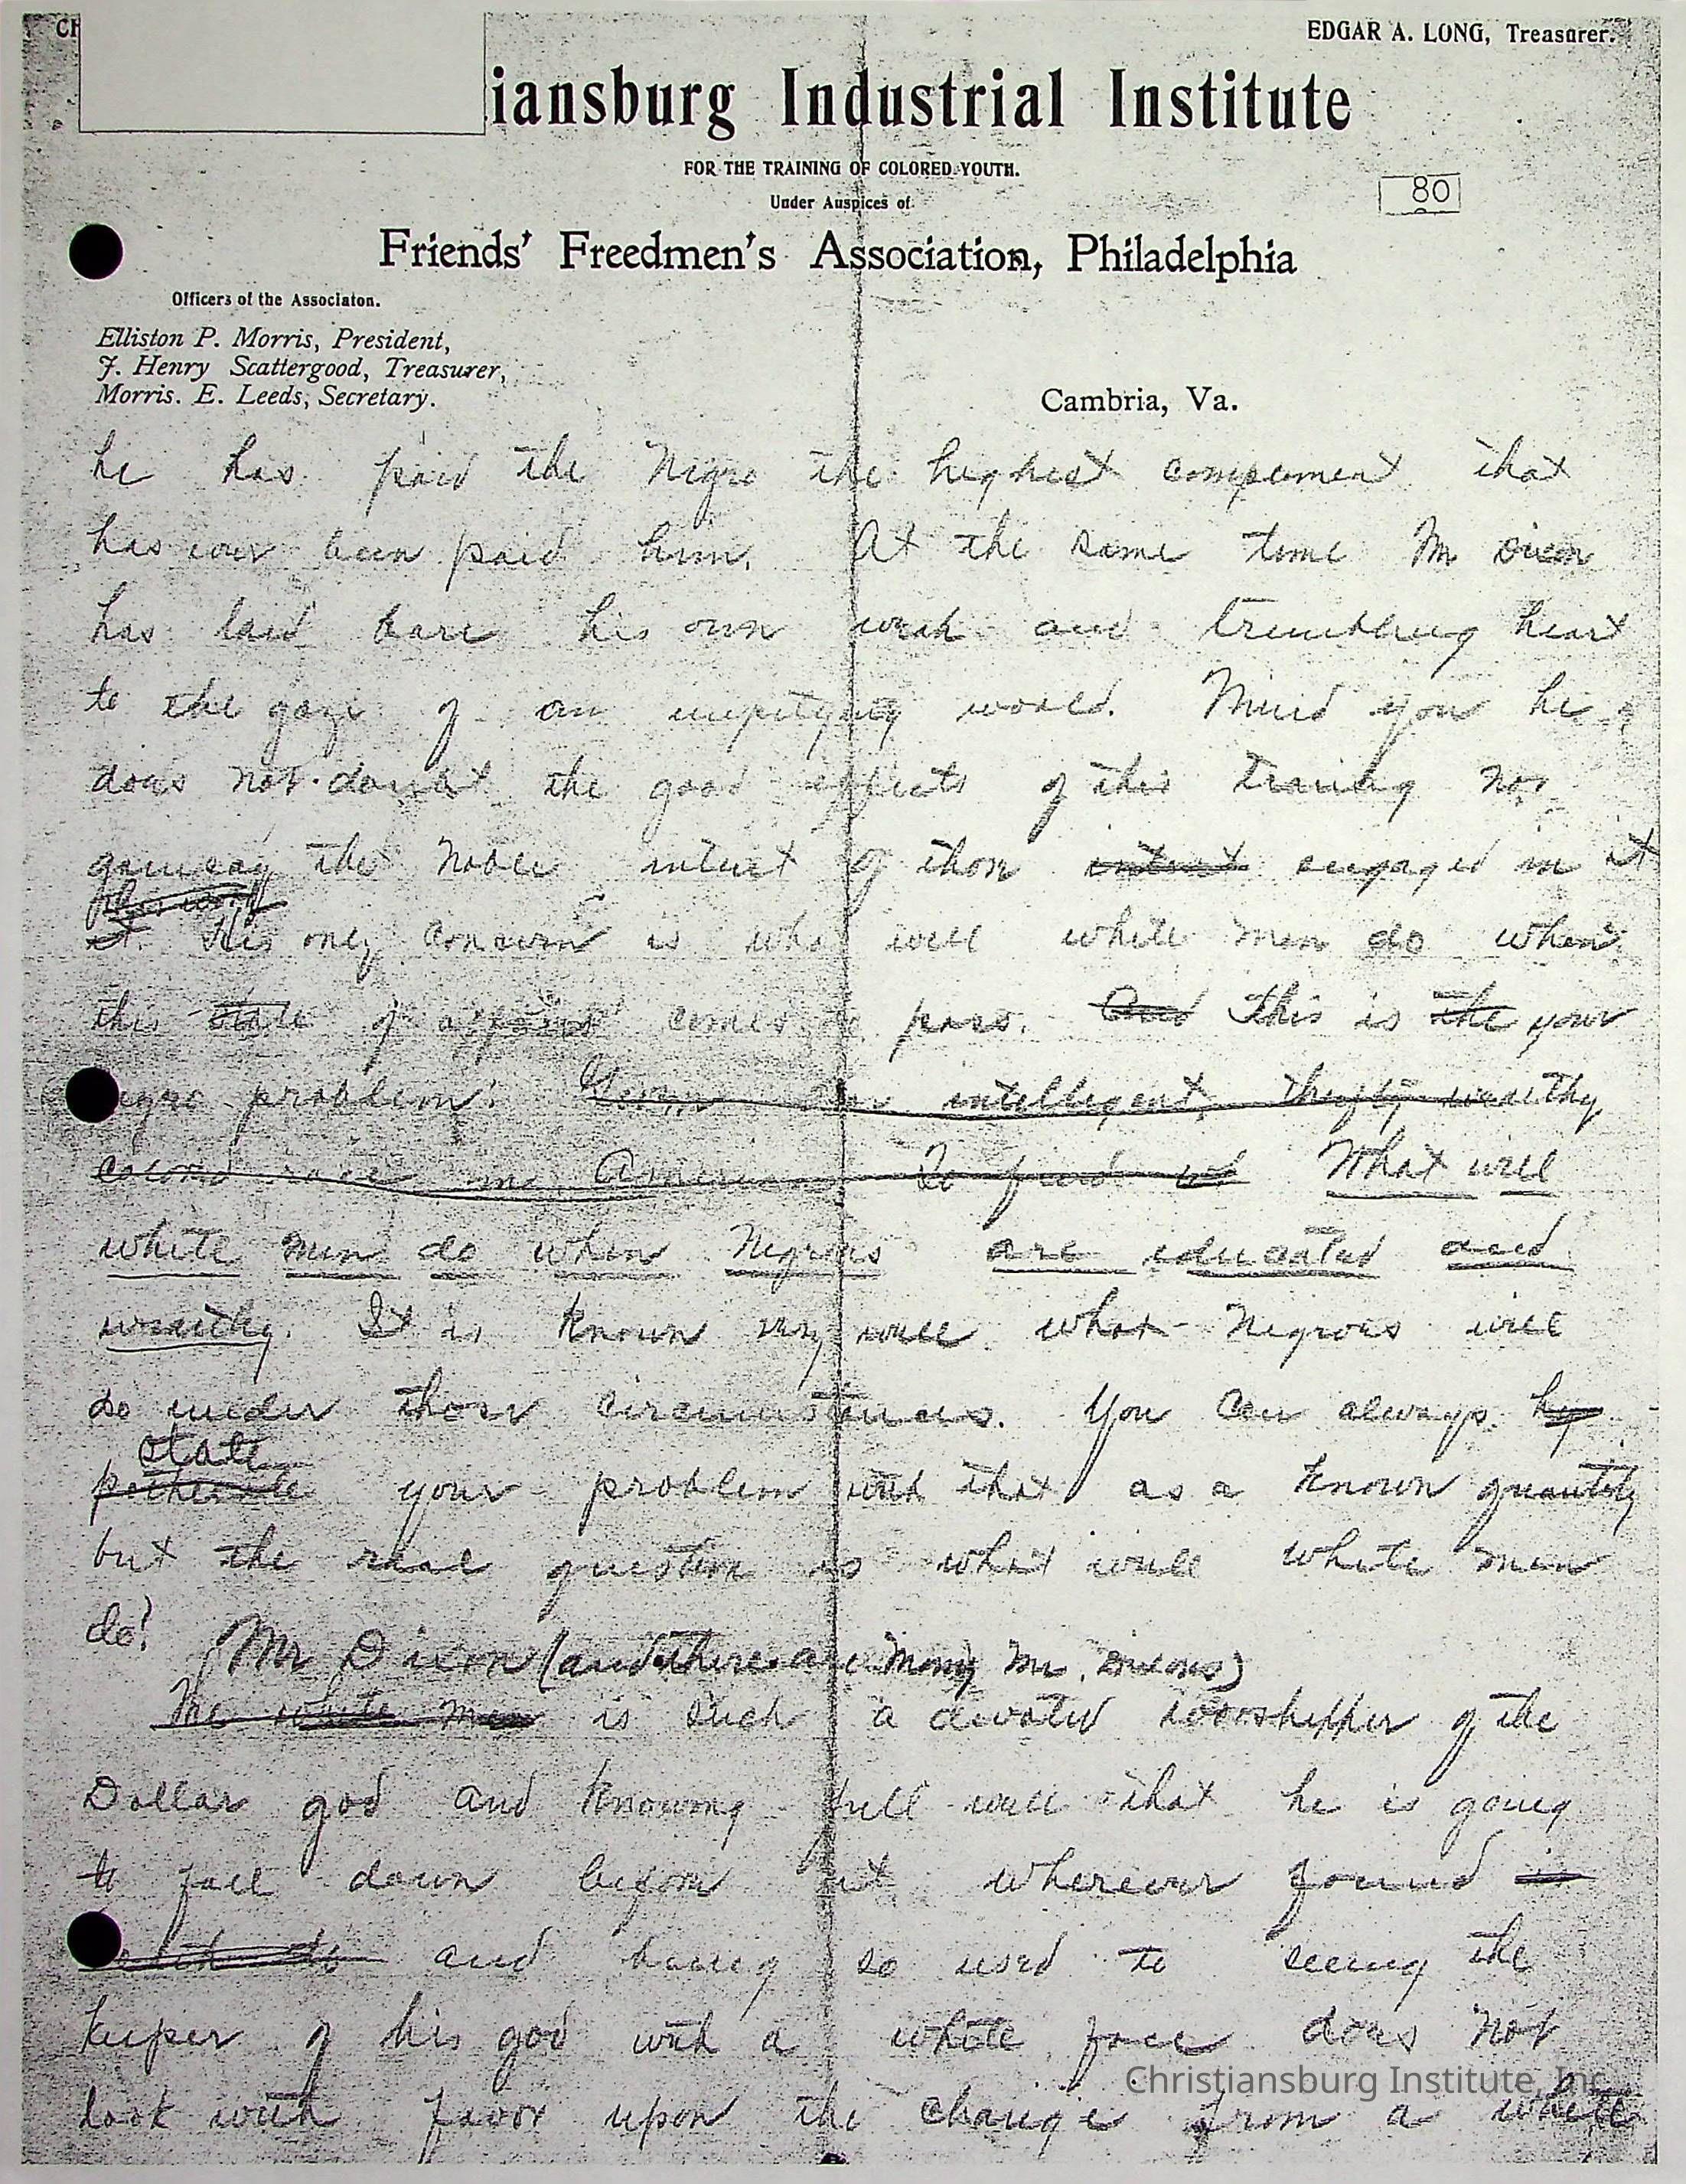 CH
EDGAR A. LONG, Treasurer.
iansburg Industrial Institute
FOR THE TRAINING OF COLORED YOUTH.
Under Auspices of
80
Friends' Freedmen's Association, Philadelphia
Officers of the Associaton.
Elliston P. Morris, President,
J. Henry Scattergood, Treasurer,
Morris. E. Leeds, Secretary.
Cambria, Va.
he has paid the Negro the highest compliment that
has ever been paid him. At the same time Mr Dixon
has laid bare his own weak and trembling heart
to the gaze of an unpitying world. Mind you he
does not doubt the good effects of this training nor
gainsay the noble intent of those intent engaged in it
it. His only concern is what will white men do when
this state of affairs comes to pass. And This is the your
Negro problem. Given an intelligent, thrifty wealthy
colored race in America To find What will
white men do when Negroes are educated and
wealthy. It is known very well what Negroes will
do under those circumstances. You can always
state
your problem with that as a known quantity
but the real question is what will white men
do?
Mr Dixon (and there are many Mr. Dixons)
The white man is such a devoted worshipper of the
Dollar god and knowing full well that he is going
to fall down before it wherever found in
and being so used to seeing the
keeper of his god with a white face does not
look with favor upon the change from a white
Christiansburg Institute, Inc.